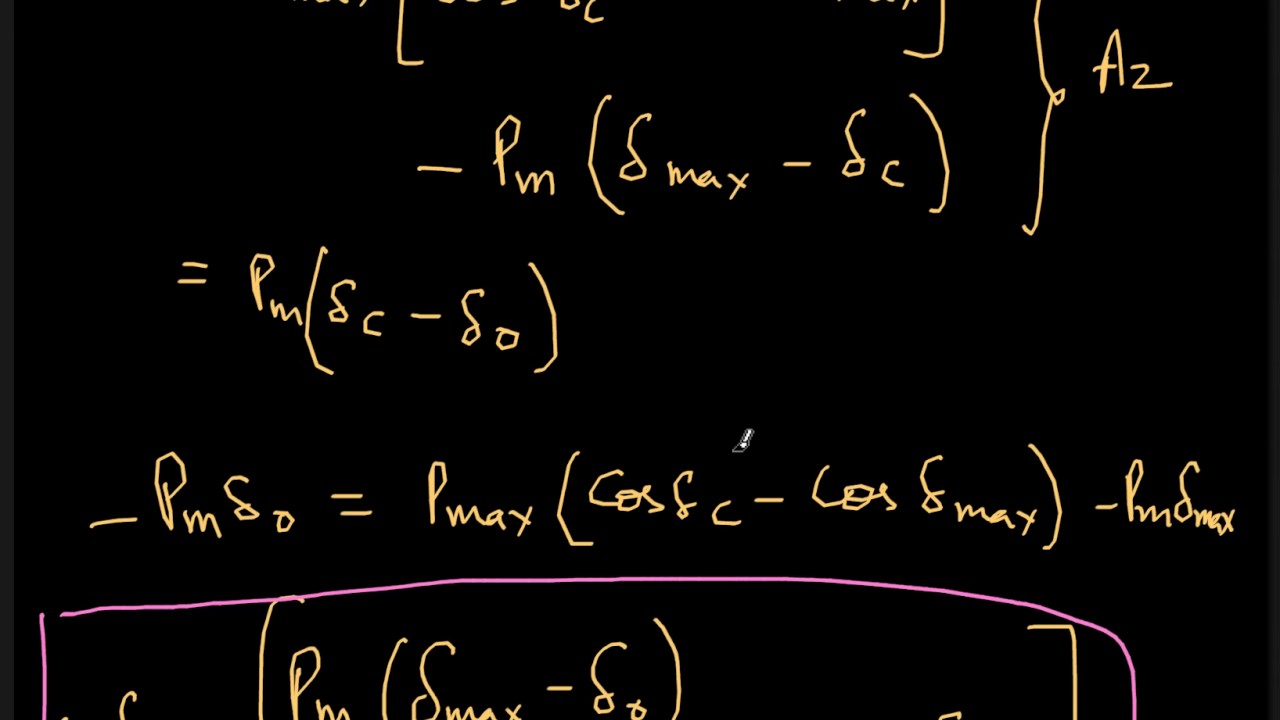 - Pm (δmax - δc)
A2
= Pm(δc - δ0)
- Pmδ0 = Pmax (Cosδc - Cos δmax) - Pmδmax
Pm (δmax - δ0)